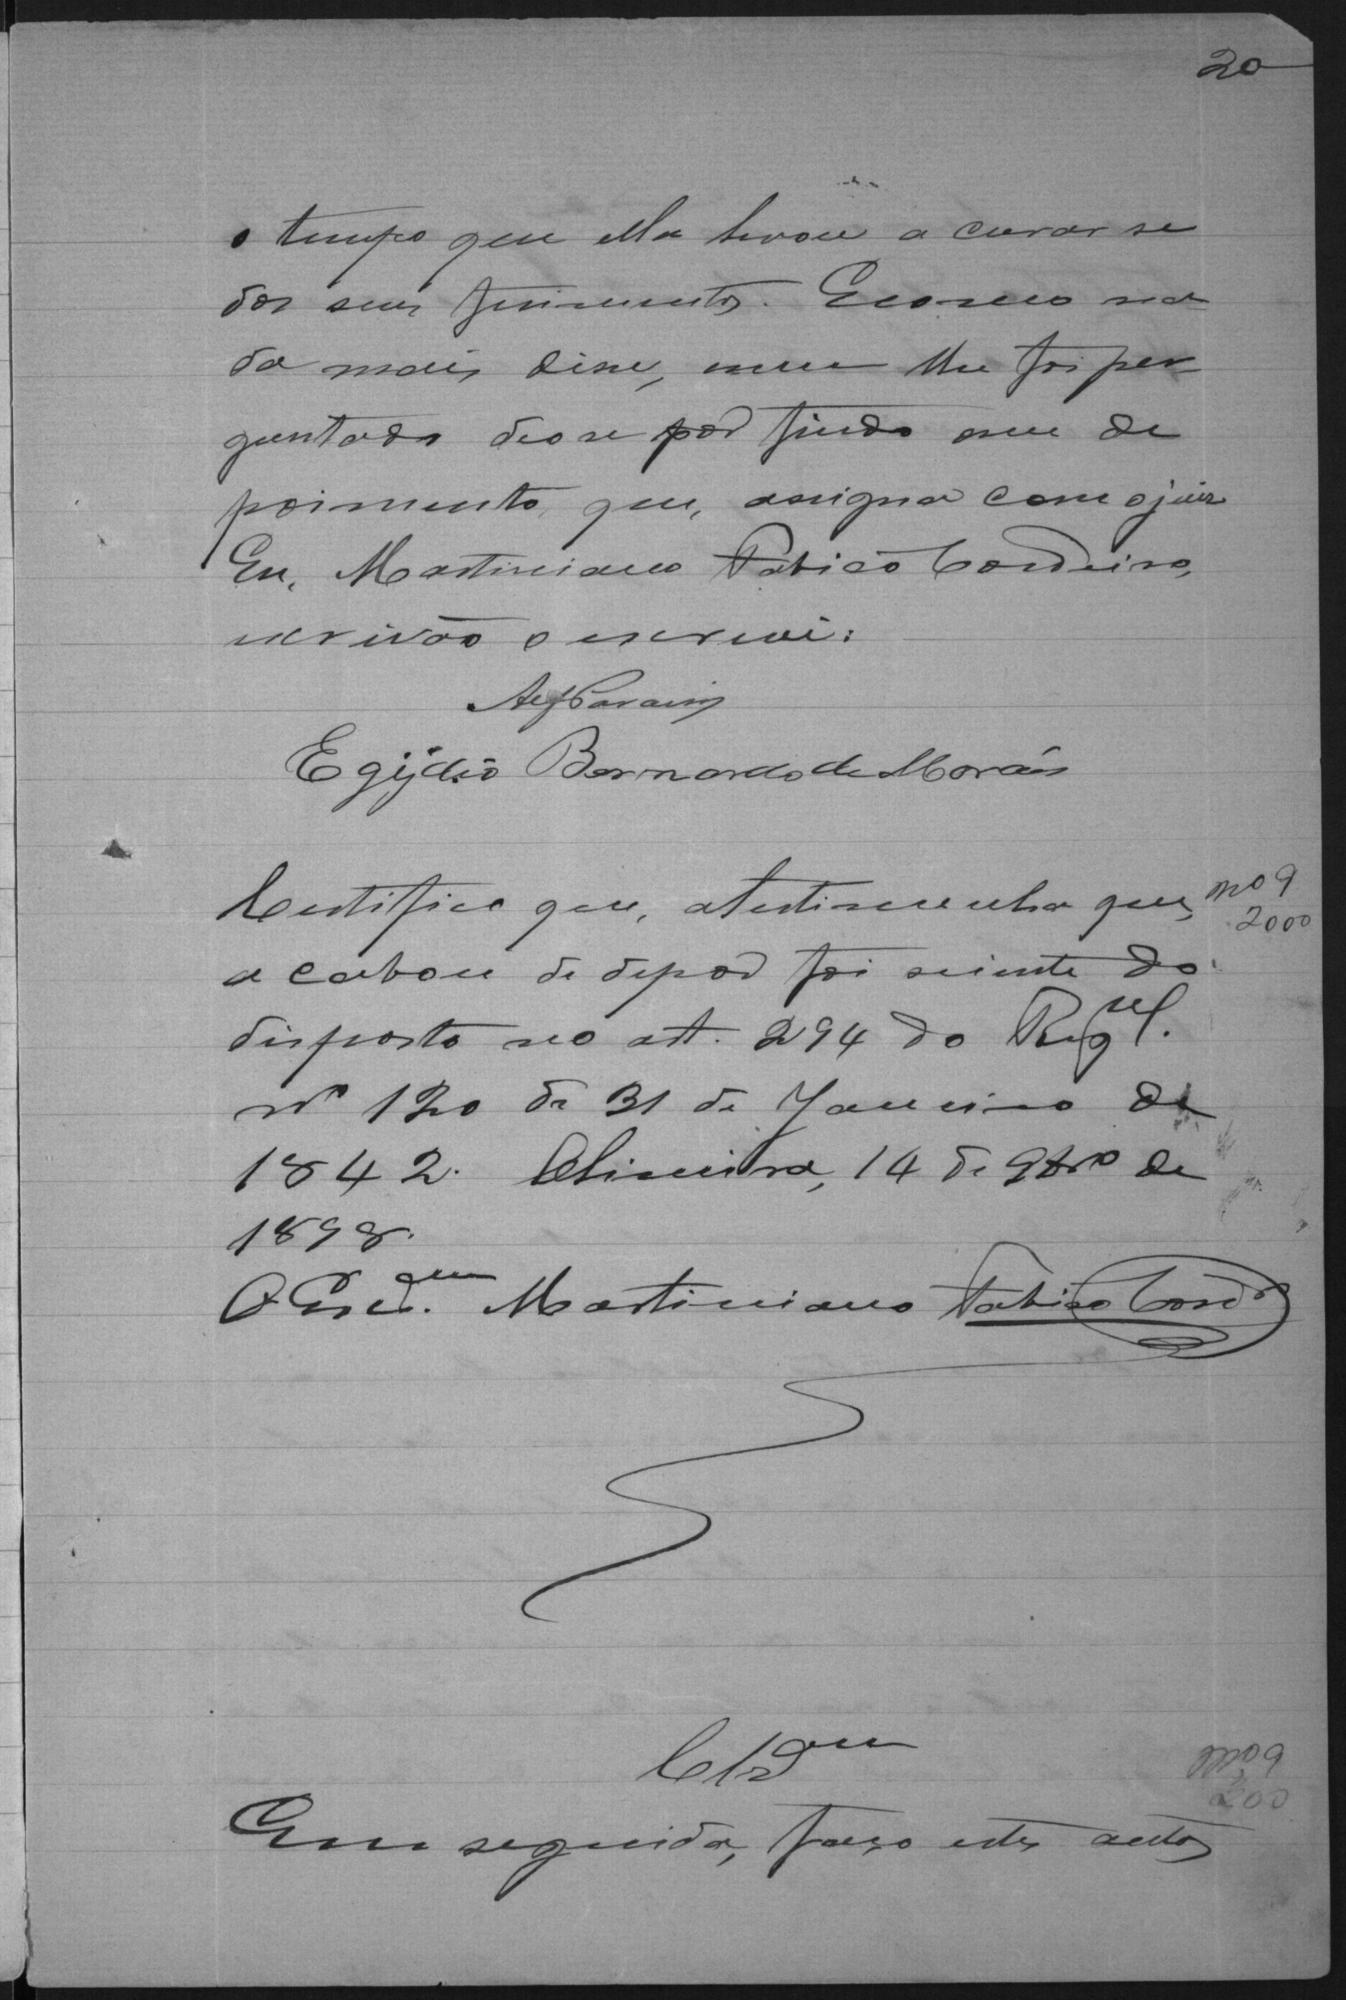 20
o tempo que ella levou a curar se
dos seus ferimentos. E como na
da mais disse, nem lhe foi per
guntado deo se por findo o seu de
poimento, que, assigna com o juiz
Eu, Martiniano Fabico Cordeiro,
escrivão o escrevi:
Egijdio Bernardo de Moraes
Certifico que, a testimunha que,
a cabou de depor foi sciente do
disposto no art. 294 do Regul.
nº 120 de 31 de Janeiro de
1842. 14 de 9brº de
1898.
O Martiniano Fabico Cordrº
nº 9
2000
Clsam
nº 9
200
Em seguida, faço estes autos